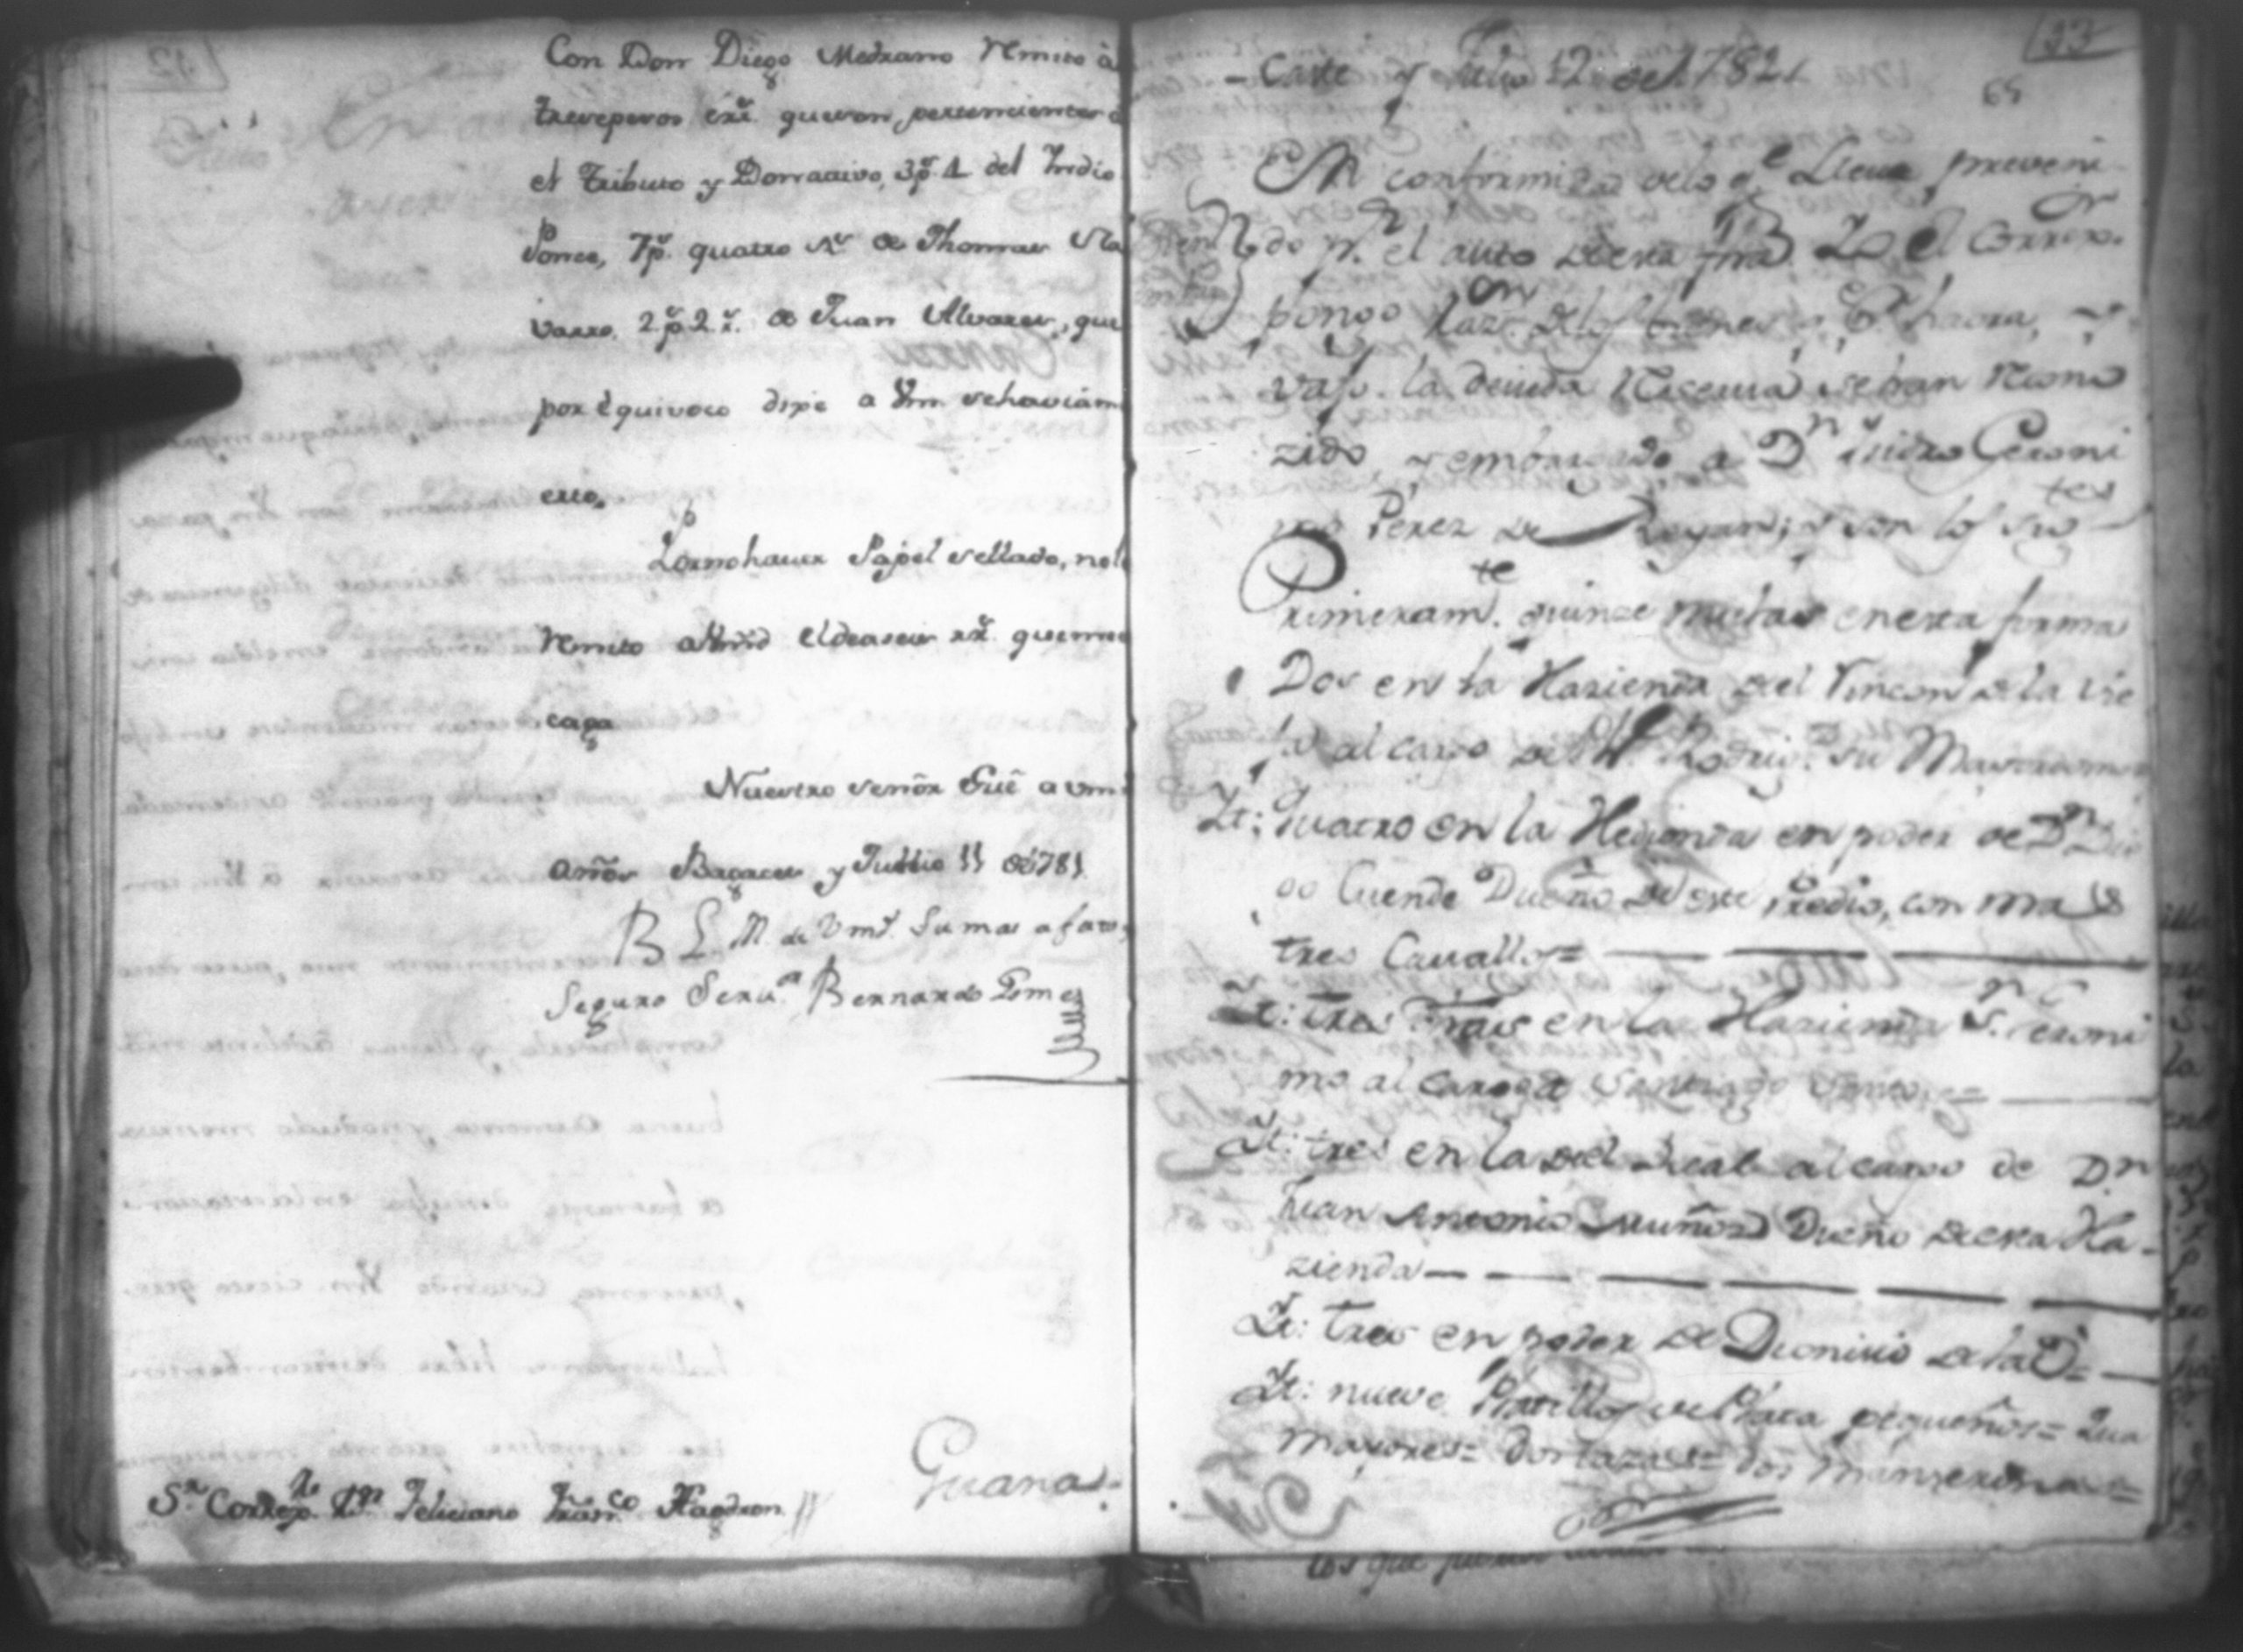 Con Don Diego Medrano Remito à
trese pesos rr.^s que son, pertenecientes a
el Tributo y Donnativo, 3p.^s 1 del Indio
Ponce, 7p.^s quatro r.^s de Thomas Na
varro. 2p.^s 2r.^s de Juan Alvarez, que
por équivoco dixe a Vm. sehavian
esto.
Por no haver Papel sellado, no le
Remito a Vmd el de a seis rr.^s que me
carga
Nuestro señor Gūe a vm.
años Bagaces y Jullio 11 de 1781
B L M de Vmd. Su mas afato,
Seguro Seru.^or Bernardo Gomez
Guana
S.^r Correg.^or D.^n Feliciano Fran.^co Hagedron
33
65
- Carte y Julio 12 de 1782
En conformidad de lo q.^e lleva preveni
do p.^r el auto de esta fha Yo el Correx.^or
pongo raz.^on de los bienes q.^e haora,
la deuda se han Recono
zido, y embargado a D.^n Isidro Geroni
mo Perez de y son los sig^tes
Primeram.^te quinze mulas en esta forma
Dos en la Hazienda del Rincon de la Vie
ja al cargo de Rodrig.^z su Mayordomo
It: Quatro en la Hedionda en poder de D.^n
Cuende Dueño de este Predio, con mas
tres Cavallos=
It: tres en la Hazienda S.^n Geroni
mo al cargo de Santiago
It: tres en la del Real al cargo de D.^n
Juan Antonio Muñoz Dueño de esta Ha-
zienda
It: tres en poder de Dionicio de la O=
It: nueve Platillos de Plata pequeños=
mayores= dos tazas= dos manserinas=
los que